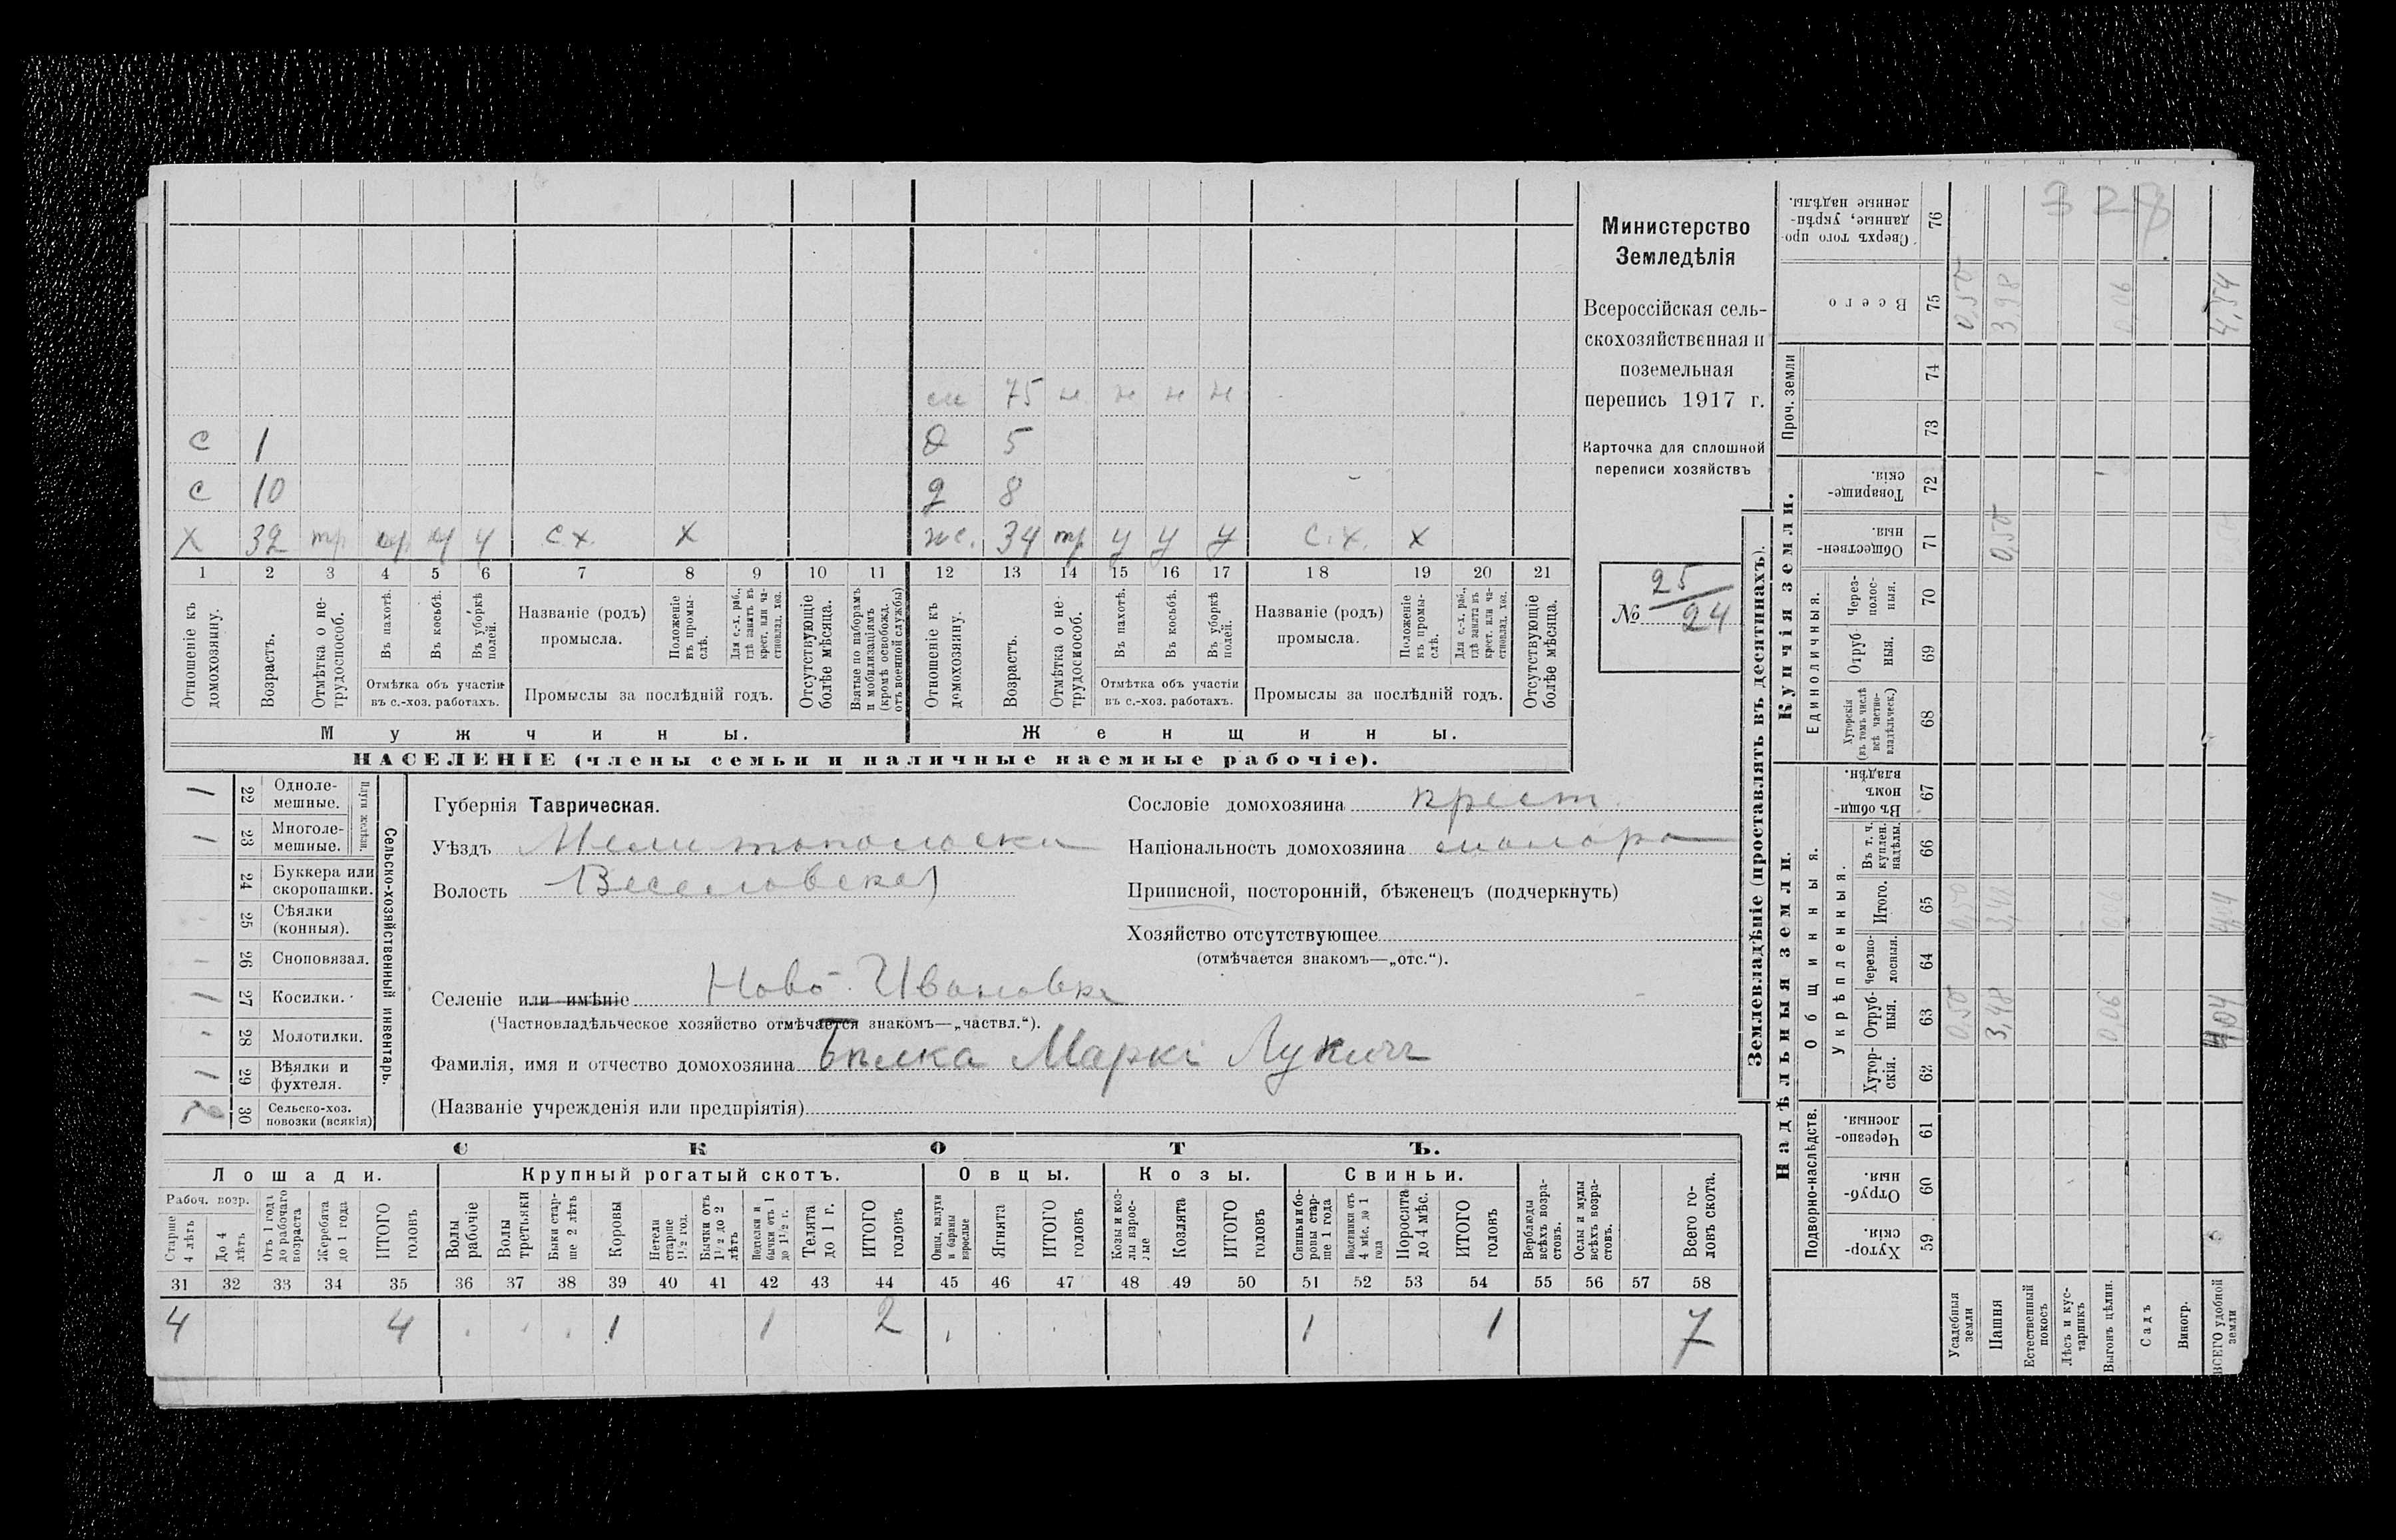 Министерство
Земледѣлія
Всероссійская сель-
скохозяйственная и
поземельная
перепись 1917 г.
Карточка для сплошной
переписи хозяйствъ
№ 25/24
м 75 н н н н
с 1 д 5
с 10 д 8
х 32 тр у у у с.х. х ж. 34 тр у у у с.х. х
1 2 3 4 5 6 7 8 9 10 11 12 13 14 15 16 17 18 19 20 21
Отношеніе къ домохозяину.
Возрастъ.
Отмѣтка о не-трудоспособ.
Въ пахотѣ.
Въ косьбѣ.
Въ уборкѣ полей.
Отмѣтка объ участіи
въ с.-хоз. работахъ.
Названіе (родъ)
промысла.
Положеніе въ промы-слѣ.
Для с.-х. раб., гдѣ занятъ въ крест. или ча-стновлад. хоз.
Промыслы за послѣдній годъ.
Отсутствующіе болѣе мѣсяца.
Взятые по наборамъ и мобилизаціямъ (кромѣ освобожд. отъ военной службы)
Отношеніе къ домохозяину.
Возрастъ.
Отмѣтка о не-трудоспособ.
Въ пахотѣ.
Въ косьбѣ.
Въ уборкѣ полей.
Отмѣтка объ участіи
въ с.-хоз. работахъ.
Названіе (родъ)
промысла.
Положеніе въ промы-слѣ.
Для с.-х. раб., гдѣ занята въ крест. или ча-стновлад. хоз.
Промыслы за послѣдній годъ.
Отсутствующіе болѣе мѣсяца.
Мужчины. Женщины.
НАСЕЛЕНІЕ (члены семьи и наличные наемные рабочіе).
Сельско-хозяйственный инвентарь.
Плуги желѣзн.
1 22 Одноле-мешные.
1 23 Многоле-мешные.
24 Буккера или скоропашки.
- 25 Сѣялки (конныя).
- 26 Сноповязал.
1 27 Косилки.
28 Молотилки.
1 29 Вѣялки и фухтеля.
30 Сельско-хоз. повозки (всякія)
Губернія Таврическая.
Уѣздъ Мелитопольски
Волость Веселовская
Селеніе или имѣніе Ново-Ивановка
(Частновладѣльческое хозяйство отмѣчается знакомъ—„частвл.“).
Фамилія, имя и отчество домохозяина Бѣлка Марко Лукичъ
(Названіе учрежденія или предпріятія)
Сословіе домохозяина крест
Національность домохозяина малоро
Приписной, посторонній, бѣженецъ (подчеркнуть)
Хозяйство отсутствующее
(отмѣчается знакомъ—„отс.“).
СКОТЪ.
Лошади. Крупный рогатый скотъ. Овцы. Козы. Свиньи.
Рабоч. возр.
Старше 4 лѣтъ
До 4 лѣтъ
Отъ 1 года до рабочаго возраста
Жеребята до 1 года
ИТОГО головъ
Волы рабочіе
Волы третьяки
Быки стар-ше 2 лѣтъ
Коровы
Нетели старше 1½ год.
Бычки отъ 1½ до 2 лѣтъ
Подтелки и бычки отъ 1 до 1½ г.
Телята до 1 г.
ИТОГО головъ
Овцы, валухи и бараны взрослые
Ягнята
ИТОГО головъ
Козы и коз-лы взрос-лые
Козлята
ИТОГО головъ
Свиньи и бо-ровы стар-ше 1 года
Подсвинки отъ 4 мѣс. до 1 года
Поросята до 4 мѣс.
ИТОГО головъ
Верблюды всѣхъ возра-стовъ.
Ослы и мулы всѣхъ возра-стовъ.
Всего го-ловъ скота.
31 32 33 34 35 36 37 38 39 40 41 42 43 44 45 46 47 48 49 50 51 52 53 54 55 56 57 58
4 4 1 1 2 1 1 7
Землевладѣніе (проставлять въ десятинахъ).
Надѣльныя земли. Купчія земли. Проч. земли
Подворно-наслѣдств. Общинныя. Укрѣпленныя. Единоличныя.
Хутор-скія. 59
Отруб-ныя. 60
Черезпо-лосныя. 61
Хутор-скія. 62
Отруб-ныя. 63
Черезпо-лосныя. 64
Итого. 65
Въ т. ч. куплен. надѣлы. 66
Въ общи-номъ владѣн. 67
Хуторскія (въ томъ числѣ всѣ частно-владѣльческ.) 68
Отруб-ныя. 69
Через-полос-ныя. 70
Обществен-ныя. 71
Товарище-скія. 72
73
74
Всего 75
Сверхъ того про-данные, укрѣп-ленные надѣлы. 76
Усадебныя земли 0,50 0,50 0,50
Пашня 3,48 3,48 0,50 3,98
Естественный покосъ
Лѣсъ и кус-тарникъ
Выгонъ цѣлин. 0,06 0,06 0,06
Садъ
Виногр.
ВСЕГО удобной земли 4,04 4,04 4,54